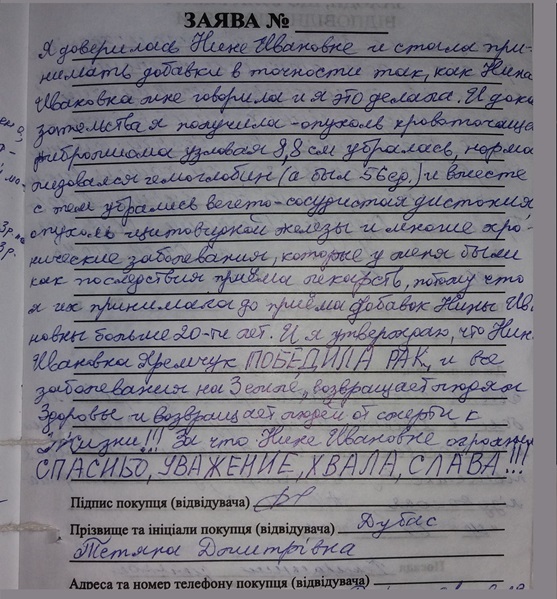 ЗАЯВА №
Я доверилась Нине Ивановне и стала при-
нимать добавки в точности так, как Нина
Ивановна мне говорила и я это делала. И дока
зательства я получила - опухоль кровоточаща
фибромиома узловая 8,8 см убралась, норма
лизовался гемоглобин (а был 56 ед.) и вместе
с тем убрались вегето-сосудистая дистония
опухоль щитовидной железы и многие хро-
нические заболевания, которые у меня были
как последствия приёма лекарств, потому что
я их принимала до приёма добавок Нины Ив
новны больше 20-ти лет. И я утверждаю, что Нин
Ивановна Яремчук ПОБЕДИЛА РАК, и все
заболевания на Земле, возвращает людям
Здоровье и возвращает людей от смерти к
Жизни!!! За что Нине Ивановне огромное
СПАСИБО, УВАЖЕНИЕ, ХВАЛА, СЛАВА!!!
Підпис покупця (відвідувача)
Прізвище та ініціали покупця (відвідувача) Дубас
Тетяна Дмитрівна
Адреса та номер телефону покупця (відвідувача)